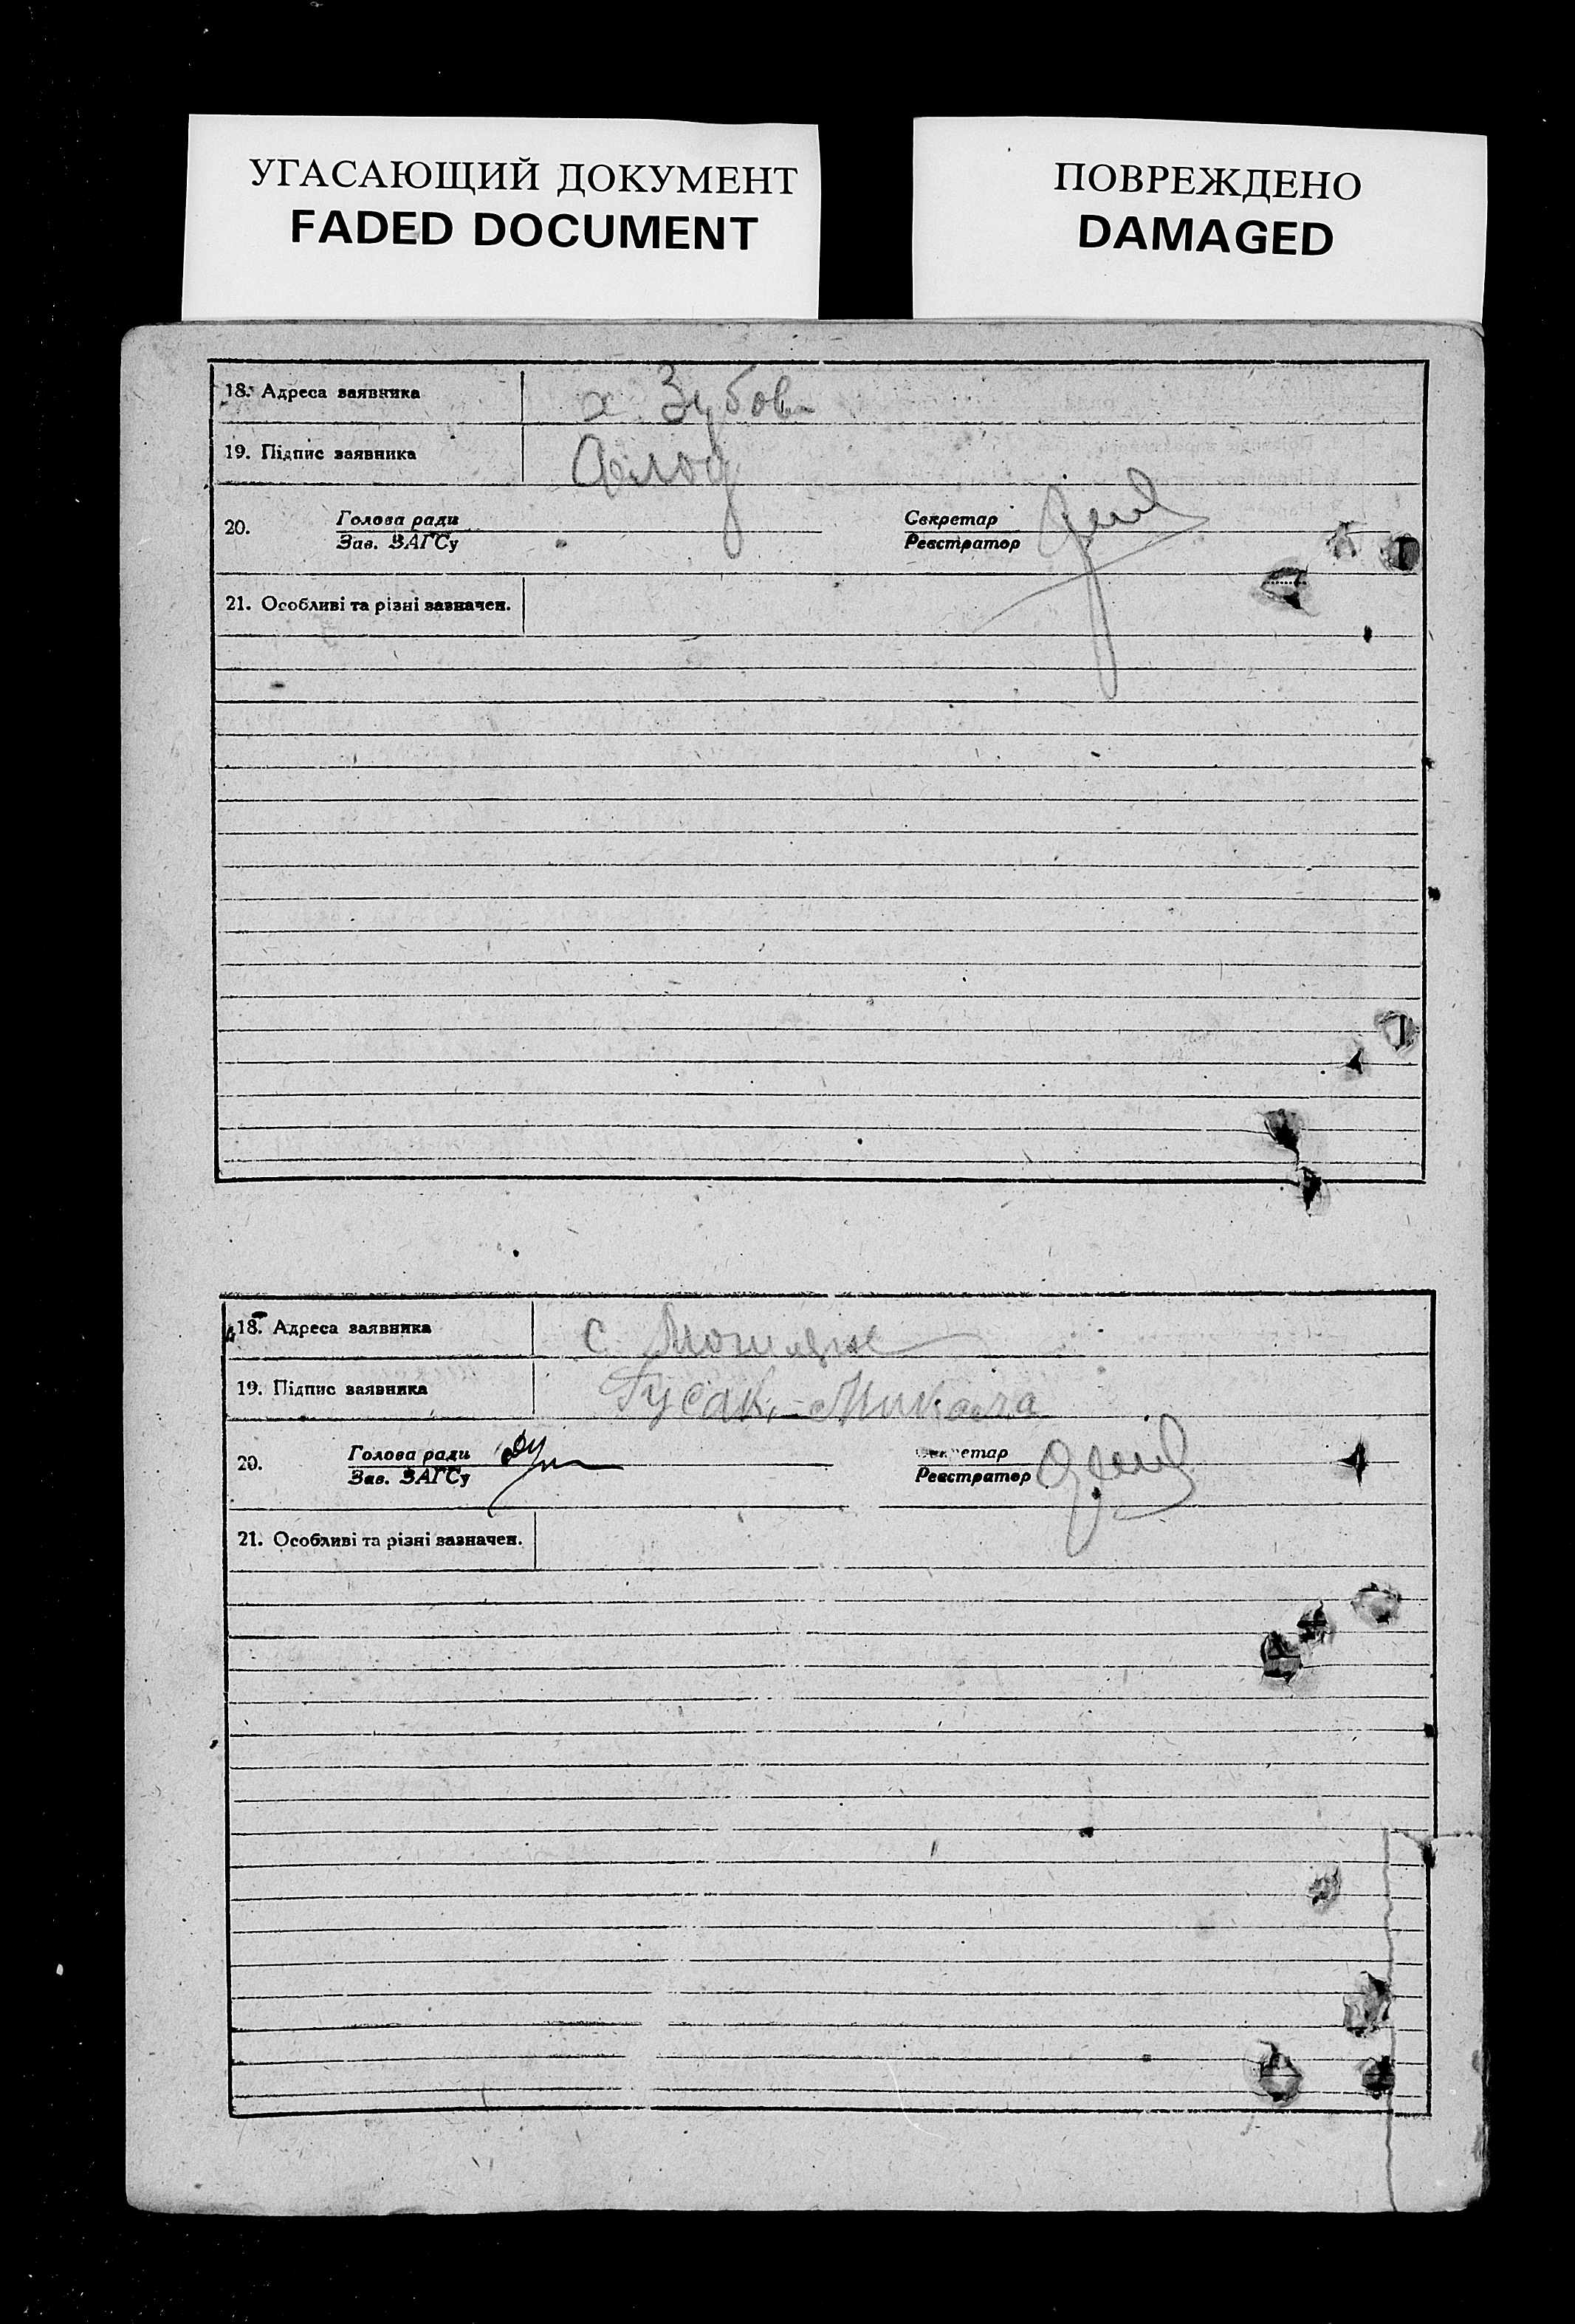 УГАСАЮЩИЙ ДОКУМЕНТ
FADED DOCUMENT
ПОВРЕЖДЕНО
DAMAGED
18. Адреса заявника х. Зубов
19. Підпис заявника
20. Голова ради Секретар
Зав. ЗАГСу Реєстратор
21. Особливі та різні зазначен.
18. Адреса заявника с.
19. Підпис заявника Гусак Микола
20. Голова ради Секретар
Зав. ЗАГСу Реєстратор
21. Особливі та різні зазначен.